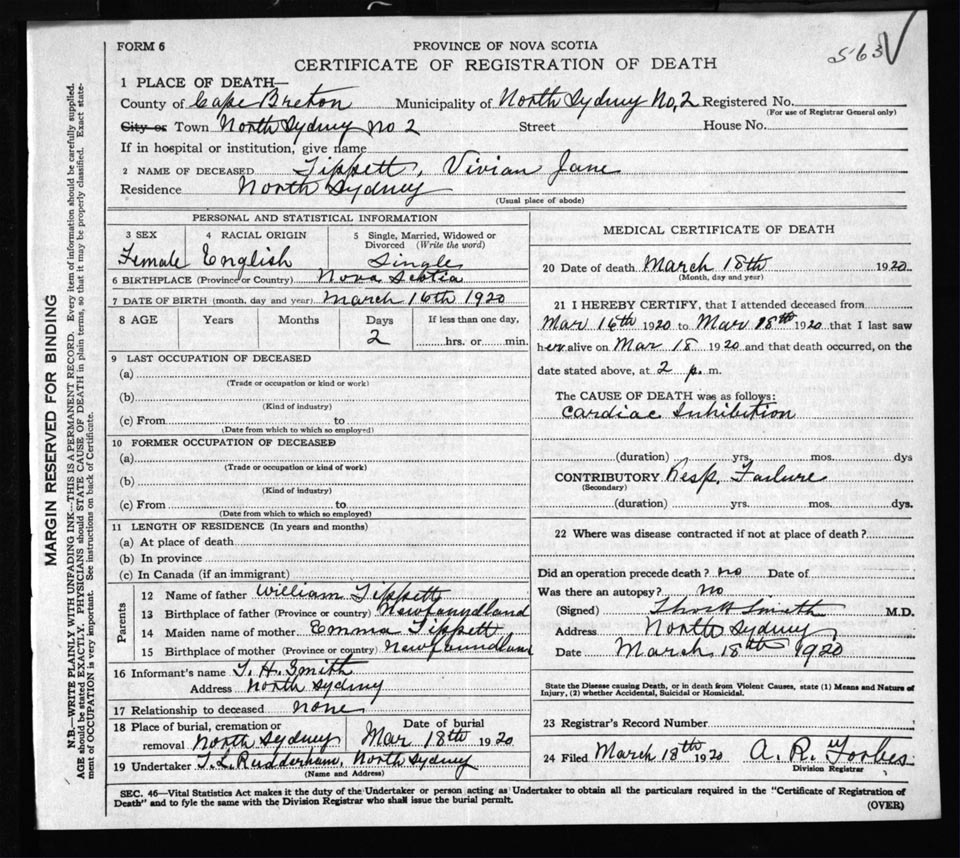 FORM 6
PROVINCE OF NOVA SCOTIA
563
CERTIFICATE OF REGISTRATION OF DEATH
1 PLACE OF DEATH—
County of Cape Breton Municipality of North Sydney No, 2 Registered No.
(For use of Registrar General only)
City or Town North Sydney No 2 Street House No.
If in hospital or institution, give name
2 NAME OF DECEASED Tippett, Vivian Jane
Residence North Sydney
(Usual place of abode)
PERSONAL AND STATISTICAL INFORMATION
3 SEX 4 RACIAL ORIGIN 5 Single, Married, Widowed or Divorced (Write the word)
Female English Single
6 BIRTHPLACE (Province or Country) Nova Scotia
7 DATE OF BIRTH (month, day and year) March 16th 1920
8 AGE Years Months Days If less than one day,
2 hrs. or min.
9 LAST OCCUPATION OF DECEASED
(a)
(Trade or occupation or kind or work)
(b)
(Kind of industry)
(c) From to
(Date from which to which so employed)
10 FORMER OCCUPATION OF DECEASED
(a)
(Trade or occupation or kind of work)
(b)
(Kind of industry)
(c) From to
(Date from which to which so employed)
11 LENGTH OF RESIDENCE (In years and months)
(a) At place of death
(b) In province
(c) In Canada (if an immigrant)
Parents
12 Name of father William Tippett
13 Birthplace of father (Province or country) Newfoundland
14 Maiden name of mother Emma Tippett
15 Birthplace of mother (Province or country) Newfoundland
16 Informant's name T. H. Smith
Address North Sydney
17 Relationship to deceased none
18 Place of burial, cremation or removal North Sydney
Date of burial
Mar 18th 1920
19 Undertaker T. L. Rudderham, North Sydney
(Name and Address)
MEDICAL CERTIFICATE OF DEATH
20 Date of death March 18th 1920
(Month, day and year)
21 I HEREBY CERTIFY, that I attended deceased from
Mar 16th 1920 to Mar 18th 1920 that I last saw
her alive on Mar 18 1920 and that death occurred, on the
date stated above, at 2 p. m.
The CAUSE OF DEATH was as follows:
Cardiac Inhibition
(duration) yrs. mos. dys
CONTRIBUTORY Resp. Failure
(Secondary)
(duration) yrs. mos. dys.
22 Where was disease contracted if not at place of death?
Did an operation precede death? no Date of
Was there an autopsy? no
(Signed) Smith M.D.
Address North Sydney
Date March 18th 1920
State the Disease causing Death, or in death from Violent Causes, state (1) Means and Nature of
Injury, (2) whether Accidental, Suicidal or Homicidal.
23 Registrar's Record Number
24 Filed March 18th 1920 A. R. Forbes
Division Registrar
SEC. 46—Vital Statistics Act makes it the duty of the Undertaker or person acting as Undertaker to obtain all the particulars required in the "Certificate of Registration of
Death" and to fyle the same with the Division Registrar who shall issue the burial permit.
(OVER)
MARGIN RESERVED FOR BINDING
N.B.—WRITE PLAINLY WITH UNFADING INK—THIS IS A PERMANENT RECORD. Every item of information should be carefully supplied.
AGE should be stated EXACTLY. PHYSICIANS should STATE CAUSE OF DEATH in plain terms, so that it may be properly classified. Exact state-
ment of OCCUPATION is very important. See instructions on back of Certificate.